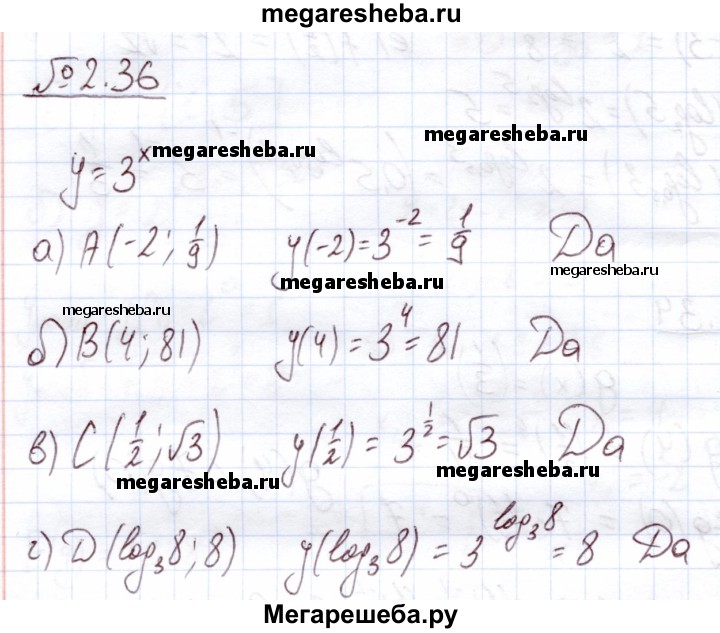 megaresheba.ru
№ 2.36
megaresheba.ru
y = 3^x megaresheba.ru
а) A(-2; 1/9) y(-2) = 3^-2 = 1/9 Да
megaresheba.ru
megaresheba.ru
megaresheba.ru
б) B(4; 81) y(4) = 3^4 = 81 Да
в) C(1/2; √3) y(1/2) = 3^1/2 = √3 Да
megaresheba.ru
megaresheba.ru
г) D(log₃8; 8) y(log₃8) = 3^log₃8 = 8 Да
Мегарешеба.ру